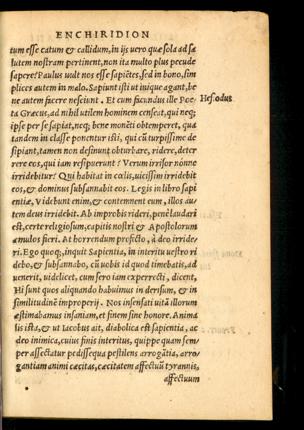 ENCHIRIDION
tum esse catum & callidum, in ijs uero quæ sola ad sa
lutem nostram pertinent, non ita multo plus pecude
sapere? Paulus uult nos esse sapiẽtes, sed in bono, sim
plices autem in malo. Sapiunt isti ut inique agant, be
ne autem facere nesciunt. Et cum facundus ille Poë-
ta Græcus, ad nihil utilem hominem censeat, qui neq;
ipse per se sapiat, neq; bene monẽti obtemperet, qua
tandem in classe ponentur isti, qui cũ turpissime de
sipiant, tamen non desinunt obturbare, ridere, deter
rere eos, qui iam resipuerunt? Verum irrisor nónne
irridebitur? Qui habitat in cœlis, uicissim irridebit
eos, & dominus subsannabit eos. Legis in libro sapi
entiæ, Videbunt enim, & contemnent eum, illos au-
tem deus irridebit. Ab improbis rideri, penè laudari
est, certe religiosum, capitis nostri & Apostolorum
æmulos fieri. At horrendum profecto, à deo irride-
ri. Ego quoq;, inquit Sapientia, in interitu uestro ri
debo, & subsannabo, cũ uobis id quod timebatis, ad
uenerit, uidelicet, cum sero iam experrecti, dicent,
Hi sunt quos aliquando habuimus in derisum, & in
similitudinẽ improperij. Nos insensati uitã illorum
æstimabamus insaniam, et finem sine honore. Anima
lis ista, & ut Iacobus ait, diabolica est sapientia, ac
deo inimica, cuius finis interitus, quippe quam sem-
per assectatur pedissequa pestilens arrogãtia, arro-
gantiam animi cæcitas, cæcitatem affectuũ tyrannis,
affectuum
Hesiodus